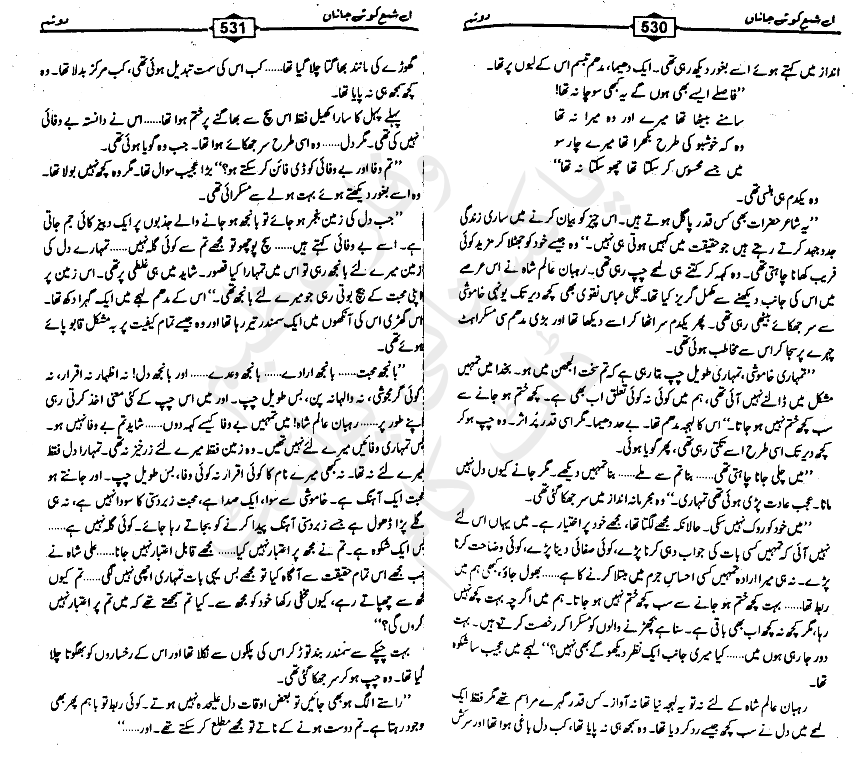 اے شمع کوئے جاناں 530 دوئم
انداز میں کہتے ہوئے اسے بغور دیکھ رہی تھی۔ ایک دھیما، مدھم تبسم اس کے لبوں پر تھا۔
”فاصلے ایسے بھی ہوں گے یہ کبھی سوچا نہ تھا!
سامنے بیٹھا تھا میرے اور وہ میرا نہ تھا
وہ کہ خوشبو کی طرح بکھرا تھا میرے چار سو
میں جسے محسوس کر سکتا تھا چھو سکتا نہ تھا“
وہ یکدم ہی ہنسی تھی۔
”یہ شاعر حضرات بھی کس قدر پاگل ہوتے ہیں۔ اس چیز کو بیان کرنے میں ساری زندگی
جدوجہد کرتے رہتے ہیں جو حقیقت میں کہیں ہوتی ہی نہیں۔“ وہ جیسے خود کو جھٹلا کر مزید کوئی
فریب کھانا چاہتی تھی۔ وہ کہہ کر کتنے ہی لمحے چپ رہی تھی۔ رہبان عالم شاہ نے اس عرصے
میں اس کی جانب دیکھنے سے مکمل گریز کیا تھا۔ تجل عباس نقوی بھی کچھ دیر تک یونہی خاموشی
سے سر جھکائے بیٹھی رہی تھی۔ پھر یکدم سر اٹھا کر اسے دیکھا تھا اور بڑی مدھم سی مسکراہٹ
چہرے پر سجا کر اس سے مخاطب ہوئی تھی۔
”تمہاری خاموشی، تمہاری طویل چپ بتا رہی ہے کہ تم سخت الجھن میں ہو۔ بخدا میں تمہیں
مشکل میں ڈالنے نہیں آئی تھی، ہم میں کوئی نہ کوئی تعلق اب بھی ہے۔ کچھ ختم ہو جانے سے
سب کچھ ختم نہیں ہو جاتا۔“ اس کا لہجہ مدھم تھا۔ بے حد دھیما۔ مگر اسی قدر پُر اثر۔ وہ چپ ہو کر
کچھ دیر تک اسی طرح اسے تکتی رہی تھی، پھر گویا ہوئی۔
”میں چلی جانا چاہتی تھی...... بنا تم سے ملے...... بنا تمہیں دیکھے۔ مگر جانے کیوں دل نہیں
مانا۔ عجب عادت پڑی ہوئی تھی تمہاری۔“ وہ مجرمانہ انداز میں سر جھکا گئی تھی۔
”میں خود کو روک نہیں سکی۔ حالانکہ مجھے لگتا تھا، مجھے خود پر اختیار ہے۔ میں یہاں اس لئے
نہیں آئی کہ تمہیں کسی بات کی جواب دہی کرنا پڑے، کوئی صفائی دینا پڑے، کوئی وضاحت کرنا
پڑے۔ نہ ہی میرا ارادہ تمہیں کسی احساسِ جرم میں مبتلا کرنے کا ہے...... بھول جاؤ، کبھی ہم میں
ربط تھا...... بہت کچھ ختم ہو جانے سے سب کچھ ختم نہیں ہو جاتا۔ ہم میں اگرچہ بہت کچھ نہیں
رہا، مگر کچھ نہ کچھ اب بھی باقی ہے۔ سنا ہے بچھڑنے والوں کو مسکرا کر رخصت کرتے ہیں۔ بہت
دور جا رہی ہوں میں...... کیا میری جانب ایک نظر دیکھو گے بھی نہیں؟“ لہجے میں عجیب سا شکوہ
تھا۔
رہبان عالم شاہ کے لئے نہ تو یہ لہجہ نیا تھا نہ آواز۔ کس قدر گہرے مراسم تھے مگر فقط ایک
لمحے میں دل نے سب کچھ جیسے رد کر دیا تھا۔ وہ سمجھ ہی نہ پایا تھا، کب دل باغی ہوا تھا اور سرکش
اے شمع کوئے جاناں 531 دوئم
گھوڑے کی مانند بھاگتا چلا گیا تھا...... کب اس کی سمت تبدیل ہوئی تھی، کب مرکز بدلا تھا۔ وہ
کچھ سمجھ ہی نہ پایا تھا۔
پہلے پہل کا سارا کھیل فقط اس سچ سے بھاگنے پر ختم ہوا تھا...... اس نے دانستہ بے وفائی
نہیں کی تھی۔ مگر دل...... وہ اسی طرح سر جھکائے ہوا تھا۔ جب وہ گویا ہوئی تھی۔
”تم وفا اور بے وفائی کو ڈی فائن کر سکتے ہو؟“ بڑا عجیب سوال تھا۔ مگر وہ کچھ نہیں بولا تھا۔
وہ اسے بغور دیکھتے ہوئے بہت ہولے سے مسکرائی تھی۔
”جب دل کی زمین بنجر ہو جائے تو بانجھ ہو جانے والے جذبوں پر ایک دبیز کائی جم جاتی
ہے۔ اسے بے وفائی کہتے ہیں...... سچ پوچھو تو مجھے تم سے کوئی گلہ نہیں...... تمہارے دل کی
زمین میرے لئے بانجھ رہی تو اس میں تمہارا کیا قصور۔ شاید میں ہی غلطی پر تھی۔ اس زمین پر
اپنی محبت کے بیج بوتی رہی جو میرے لئے بانجھ تھی۔“ اس کے مدھم لہجے میں ایک گہرا دکھ تھا۔
اس گھڑی اس کی آنکھوں میں ایک سمندر تیر رہا تھا اور وہ جیسے تمام کیفیت پر بہ مشکل قابو پائے
ہوئے تھی۔
”بانجھ محبت...... بانجھ ارادے...... بانجھ وعدے...... اور بانجھ دل! نہ اظہار نہ اقرار، نہ
کوئی گرمجوشی، نہ والہانہ پن، بس طویل چپ۔ اور میں اس چپ کے کئی معنی اخذ کرتی رہی
اپنے طور پر...... رہبان عالم شاہ! میں تمہیں بے وفا کیسے کہہ دوں...... شاید تم بے وفا نہیں ہو۔
بس تمہاری وفائیں میرے لئے نہیں تھیں۔ وہ زمین فقط میرے لئے زرخیز نہ تھی۔ تمہارا دل فقط
میرے لئے نہ تھا۔ نہ کبھی میرے نام کا کوئی اقرار نہ کوئی وفا، بس طویل چپ۔ اور جانتے ہو
محبت ایک آہنگ ہے۔ خاموشی سے سوا، ایک صدا ہے، محبت زبردستی کا سودا نہیں ہے، نہ ہی
گلے پڑا ڈھول ہے جسے زبردستی آہنگ پیدا کرنے کو بجاتے رہا جائے۔ کوئی گلہ نہیں ہے......
بس ایک شکوہ ہے۔ تم نے مجھ پر اعتبار نہیں کیا...... مجھے قابل اعتبار نہیں جانا...... علی شاہ نے
جب مجھے اس تمام حقیقت سے آگاہ کیا تو مجھے بس یہی بات تمہاری اچھی نہیں لگی...... تم کیوں
مجھ سے چھپاتے رہے، کیوں مخفی رکھا خود کو مجھ سے۔ کیا تم سمجھتے تھے کہ میں تم پر اعتبار نہیں
کروں گی؟“
بہت چپکے سے سمندر بند توڑ کر اس کی پلکوں سے نکلا تھا اور اس کے رخساروں کو بھگوتا چلا
گیا تھا۔ وہ چپ ہو کر سر جھکا گئی تھی۔
”راستے الگ ہو بھی جائیں تو بعض اوقات دل علیحدہ نہیں ہوتے۔ کوئی ربط تو باہم پھر بھی
موجود رہتا ہے۔ تم دوست ہونے کے ناتے تو مجھے مطلع کر سکتے تھے۔ اور......“